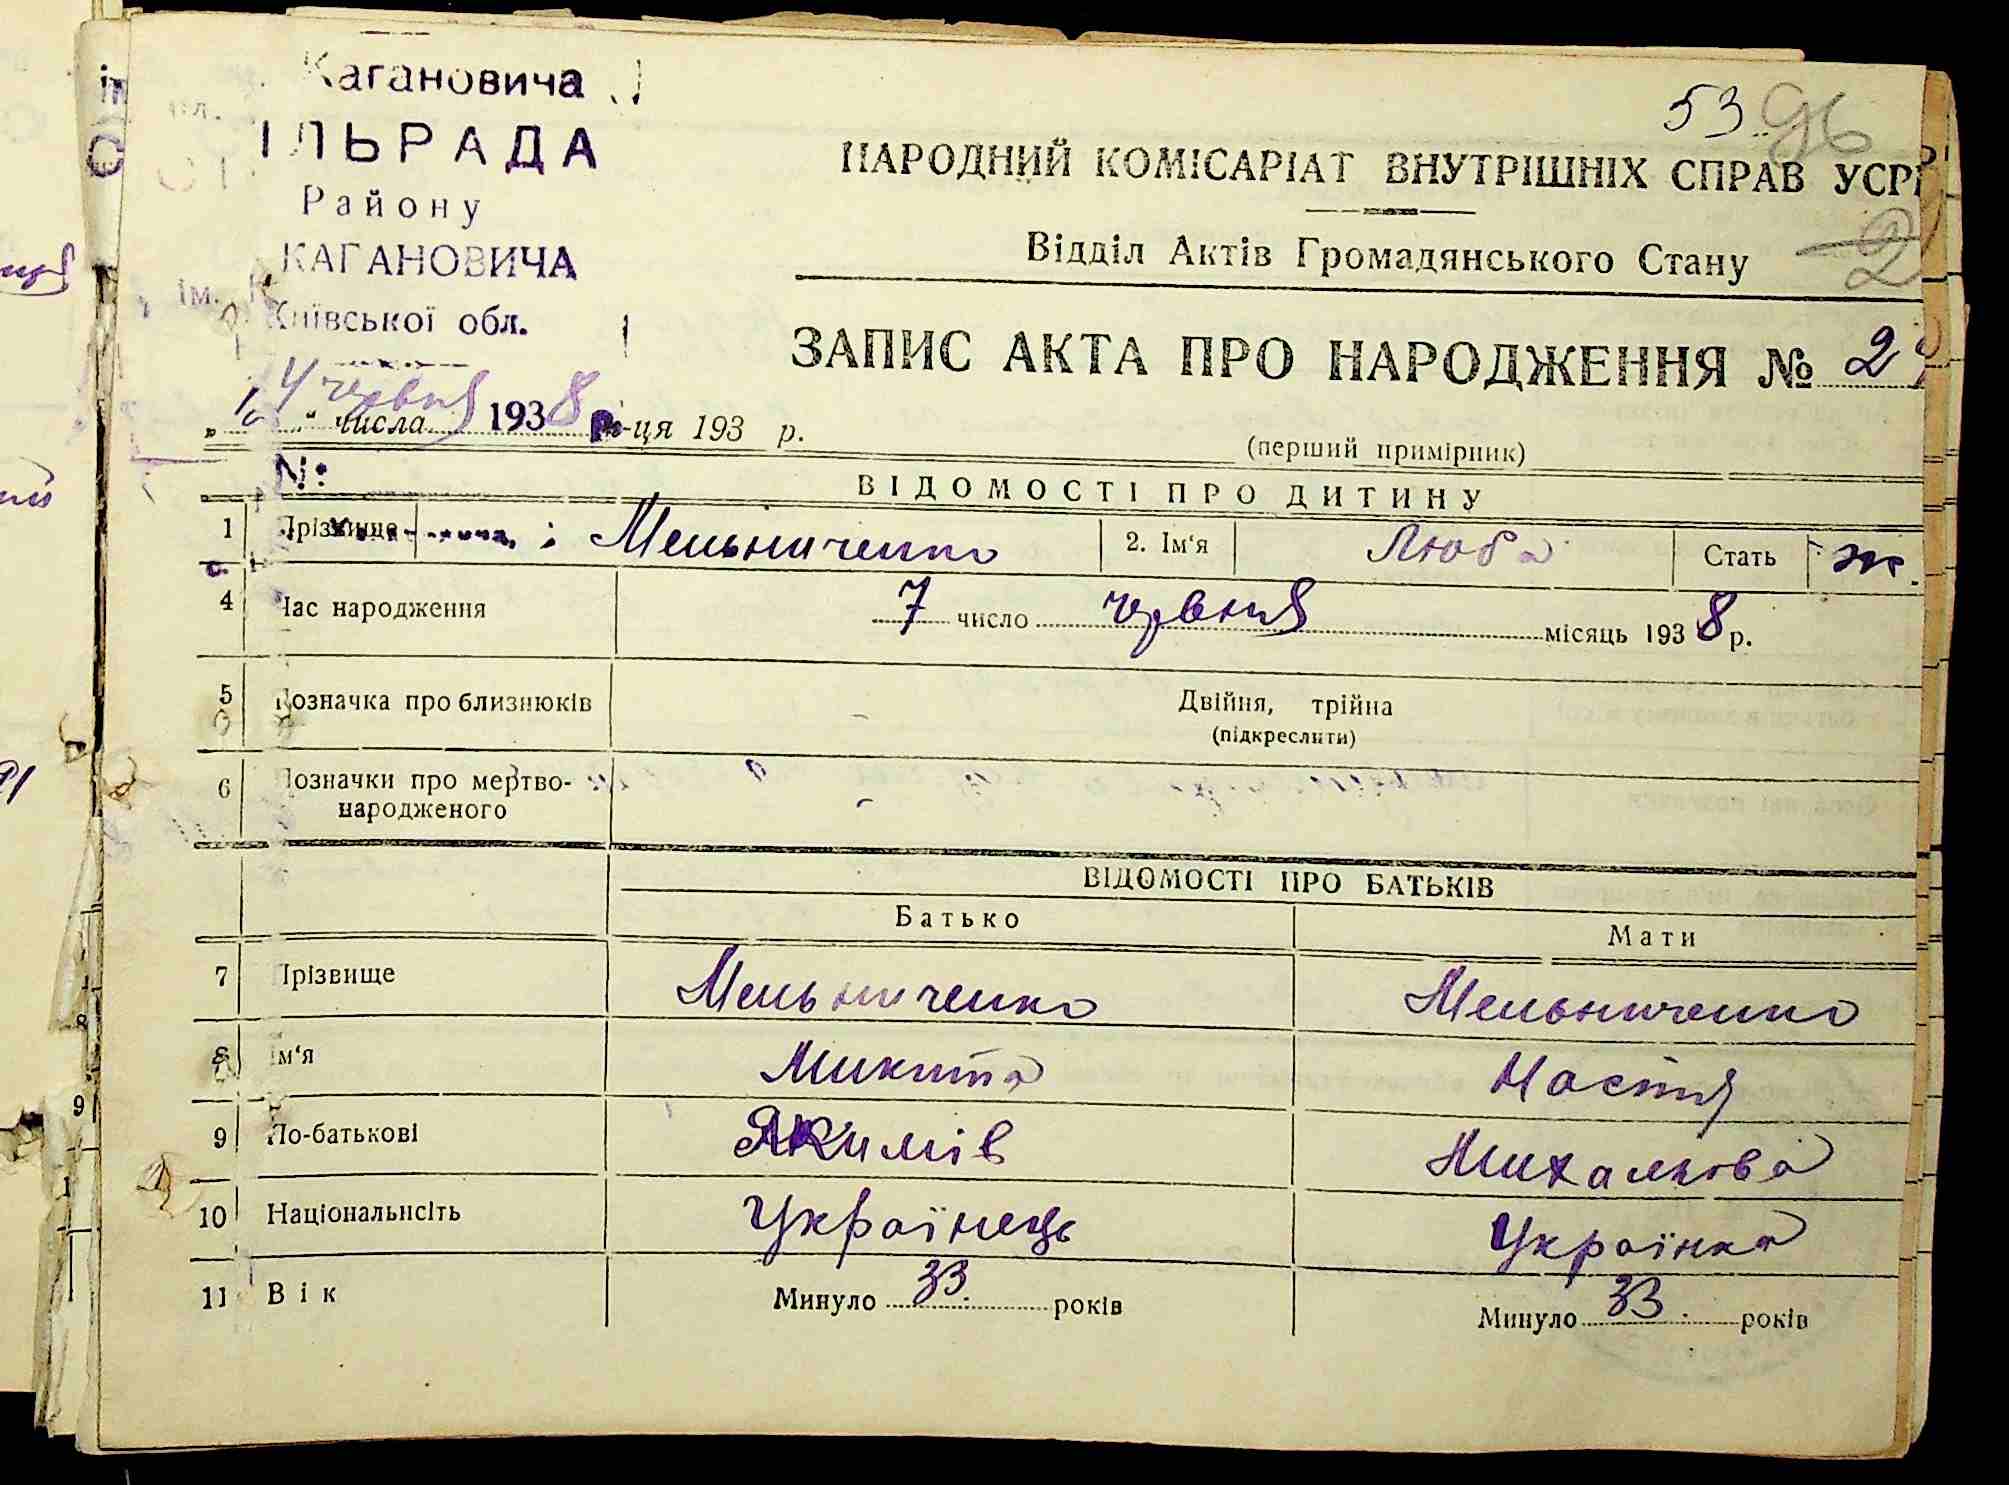 53 96
Кагановича
ІЛЬРАДА
Району
КАГАНОВИЧА
ім.
Київської обл.
НАРОДНИЙ КОМІСАРІАТ ВНУТРІШНІХ СПРАВ УСРР
Відділ Актів Громадянського Стану
ЗАПИС АКТА ПРО НАРОДЖЕННЯ №
червня 1938
числа -ця 193 р.
(перший примірник)
№:
ВІДОМОСТІ ПРО ДИТИНУ
1 Прізвище Мельниченко 2. Ім‘я Люба Стать ж.
4 Час народження 7 число червня місяць 1938 р.
5 Позначка про близнюків Двійня, трійна
(підкреслити)
6 Позначки про мертво-
народженого
ВІДОМОСТІ ПРО БАТЬКІВ
Батько Мати
7 Прізвище Мельниченко Мельниченко
8 Ім‘я Микита Настя
9 По-батькові Якимів Михалкова
10 Національність Українець Українка
11 Вік Минуло 33. років Минуло 33. років